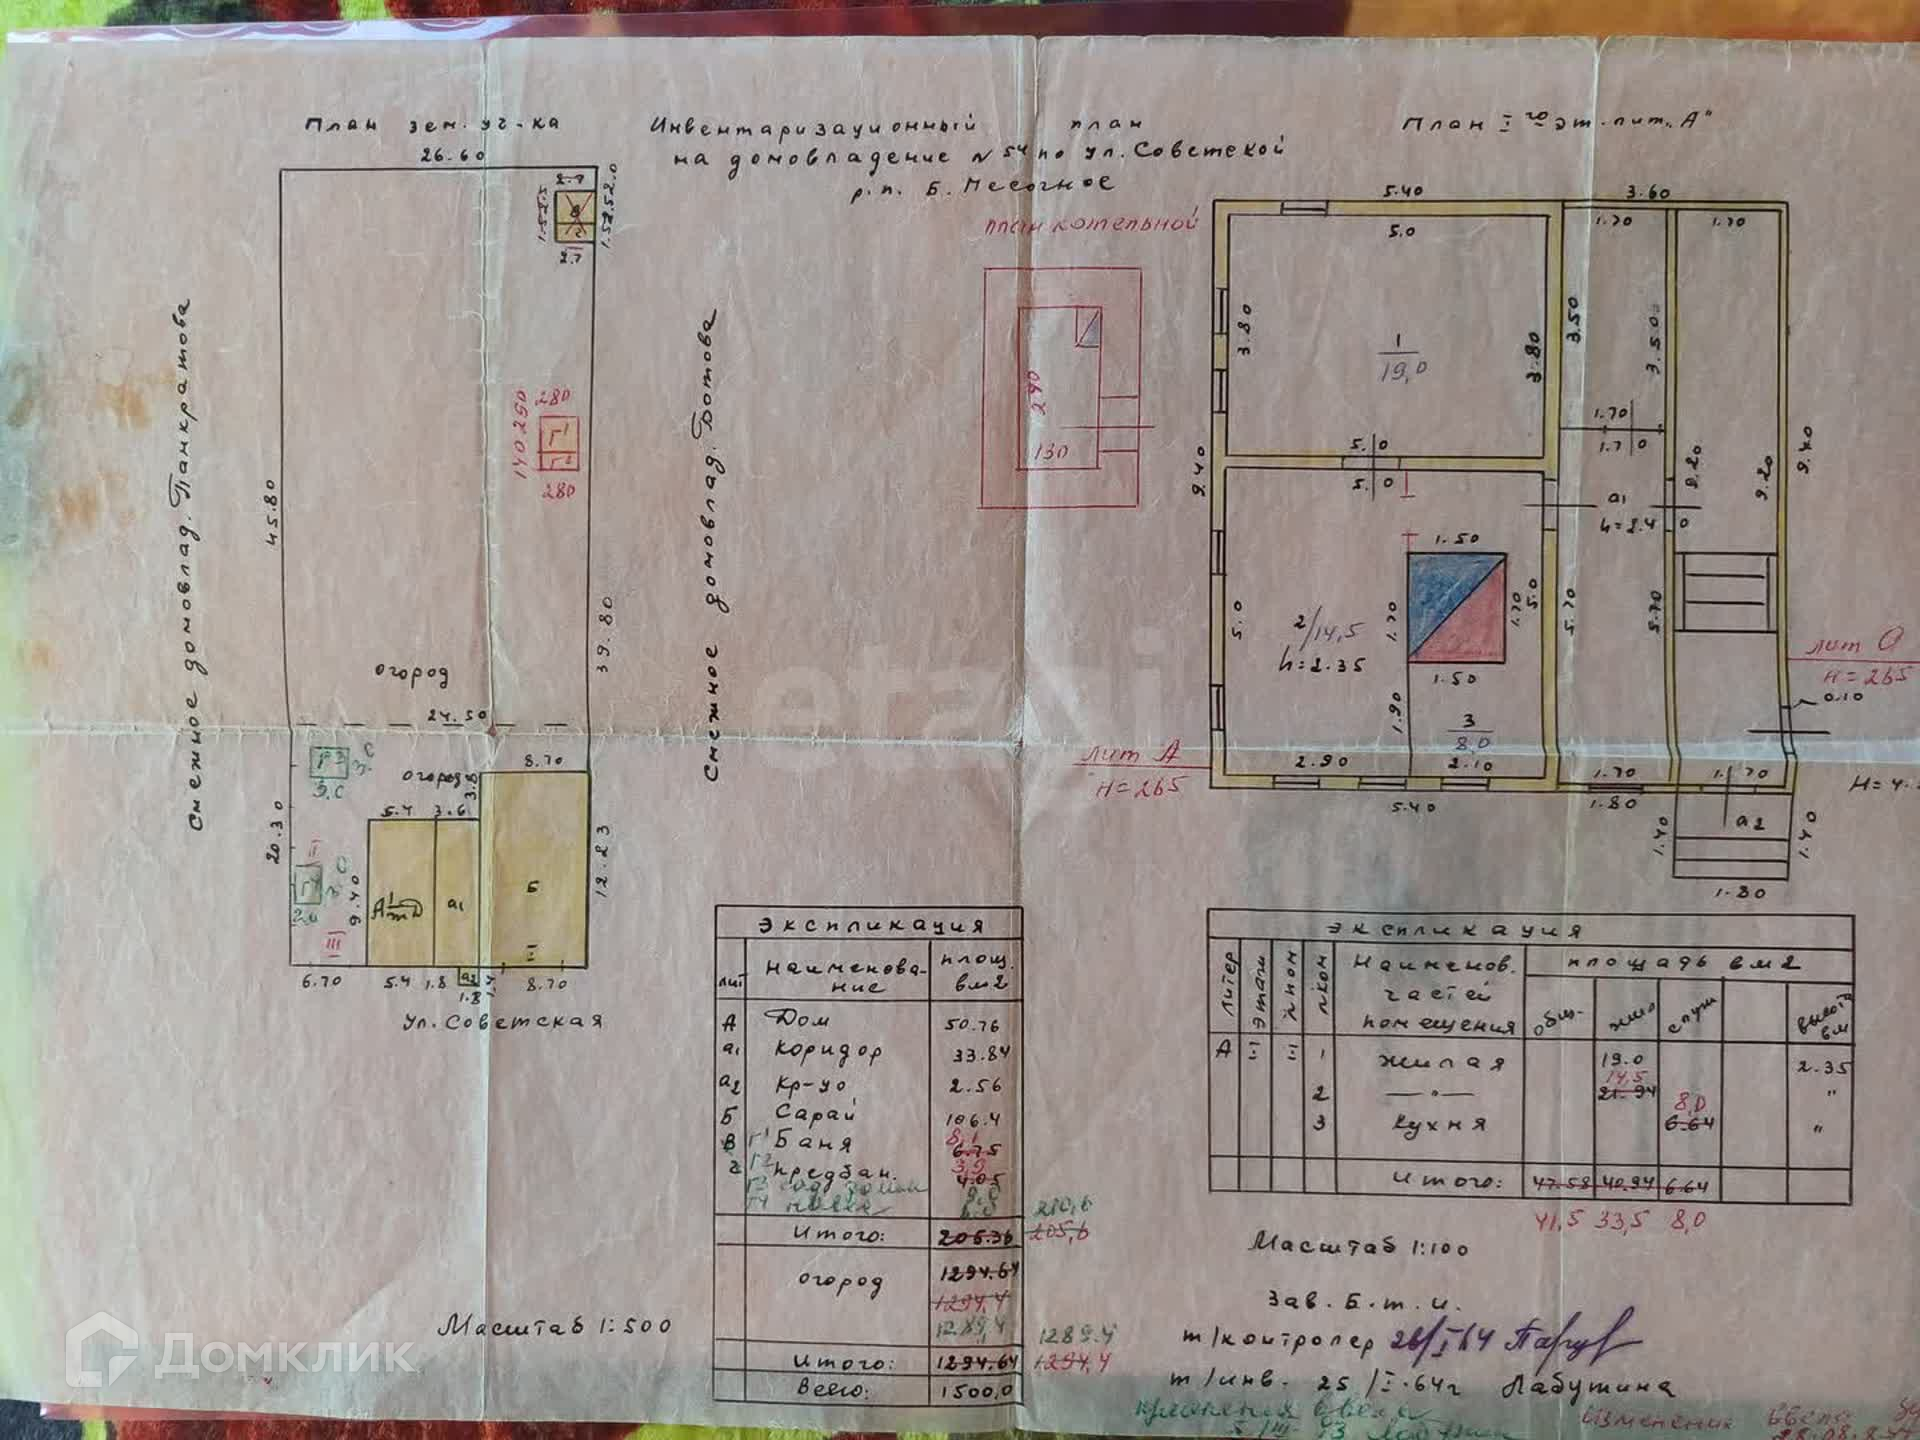 План зем. уч-ка
26.60
Инвентаризационный план
на домовладение N 54 по ул. Советской
р.п. Б. Песочное
План I го эт. лит. „А"
план котельной
2.7
1.5 2.5
1.5 2.5 2.0
2.7
280
140 250
Г1
Г2
280
45.80
39.80
Смежное домовлад. Панкратова
Смежное домовлад. Ботова
огород
24.50
огород
8.70
3.8
Г3
3.0
5.4 3.6
20.30
12.23
II
Г4
2.0
III
9.40
а1
Б
I
а2
6.70 5.4 1.8 1.8 1.4 8.70
ул. Советская
Масштаб 1:500
240
130
5.40
3.60
5.0
1.70
1.70
3.80
3.80
3.50
3.50
1
19,0
9.40
5.0
5.0
1.70
1.70
а1
h=2.4
9.20
9.20
9.40
1.50
5.0
1.70
1.70
5.0
5.70
5.70
2/14,5
h=2.35
1.50
1.90
3
8,0
2.90
2.10
5.40
1.70
1.70
1.80
а2
1.40
1.40
1.80
0.10
лит А
Н=265
лит а
Н=265
Экспликация
лит
Наименование
площ. в м2
А Дом 50.76
а1 Коридор 33.84
а2 Кр-цо 2.56
Б Сарай 106.4
В Г1 Баня 8,1 6.75
г Г2 предбан. 3,9 4.05
Г3
Г4
210,6
Итого: 205.36 205,6
огород 1294.64
1294,4
1289,4 1289.4
Итого: 1294.64 1294,4
Всего: 1500,0
Экспликация
Литер
Этажи
N пом
N ком
Наименов. частей помещения
площадь в м2
общ.
жило
служ
высота в м
А 1 1 1 жилая 19.0 2.35
14,5
2 —"— 21.94 "
8,0
3 Кухня 6.64 "
Итого: 47.58 40.94 6.64
41,5 33,5 8,0
Масштаб 1:100
Зав. Б.Т.И.
т/контролер 26/I 64
т/инв. 25/I-64г Лабутина
Изменения